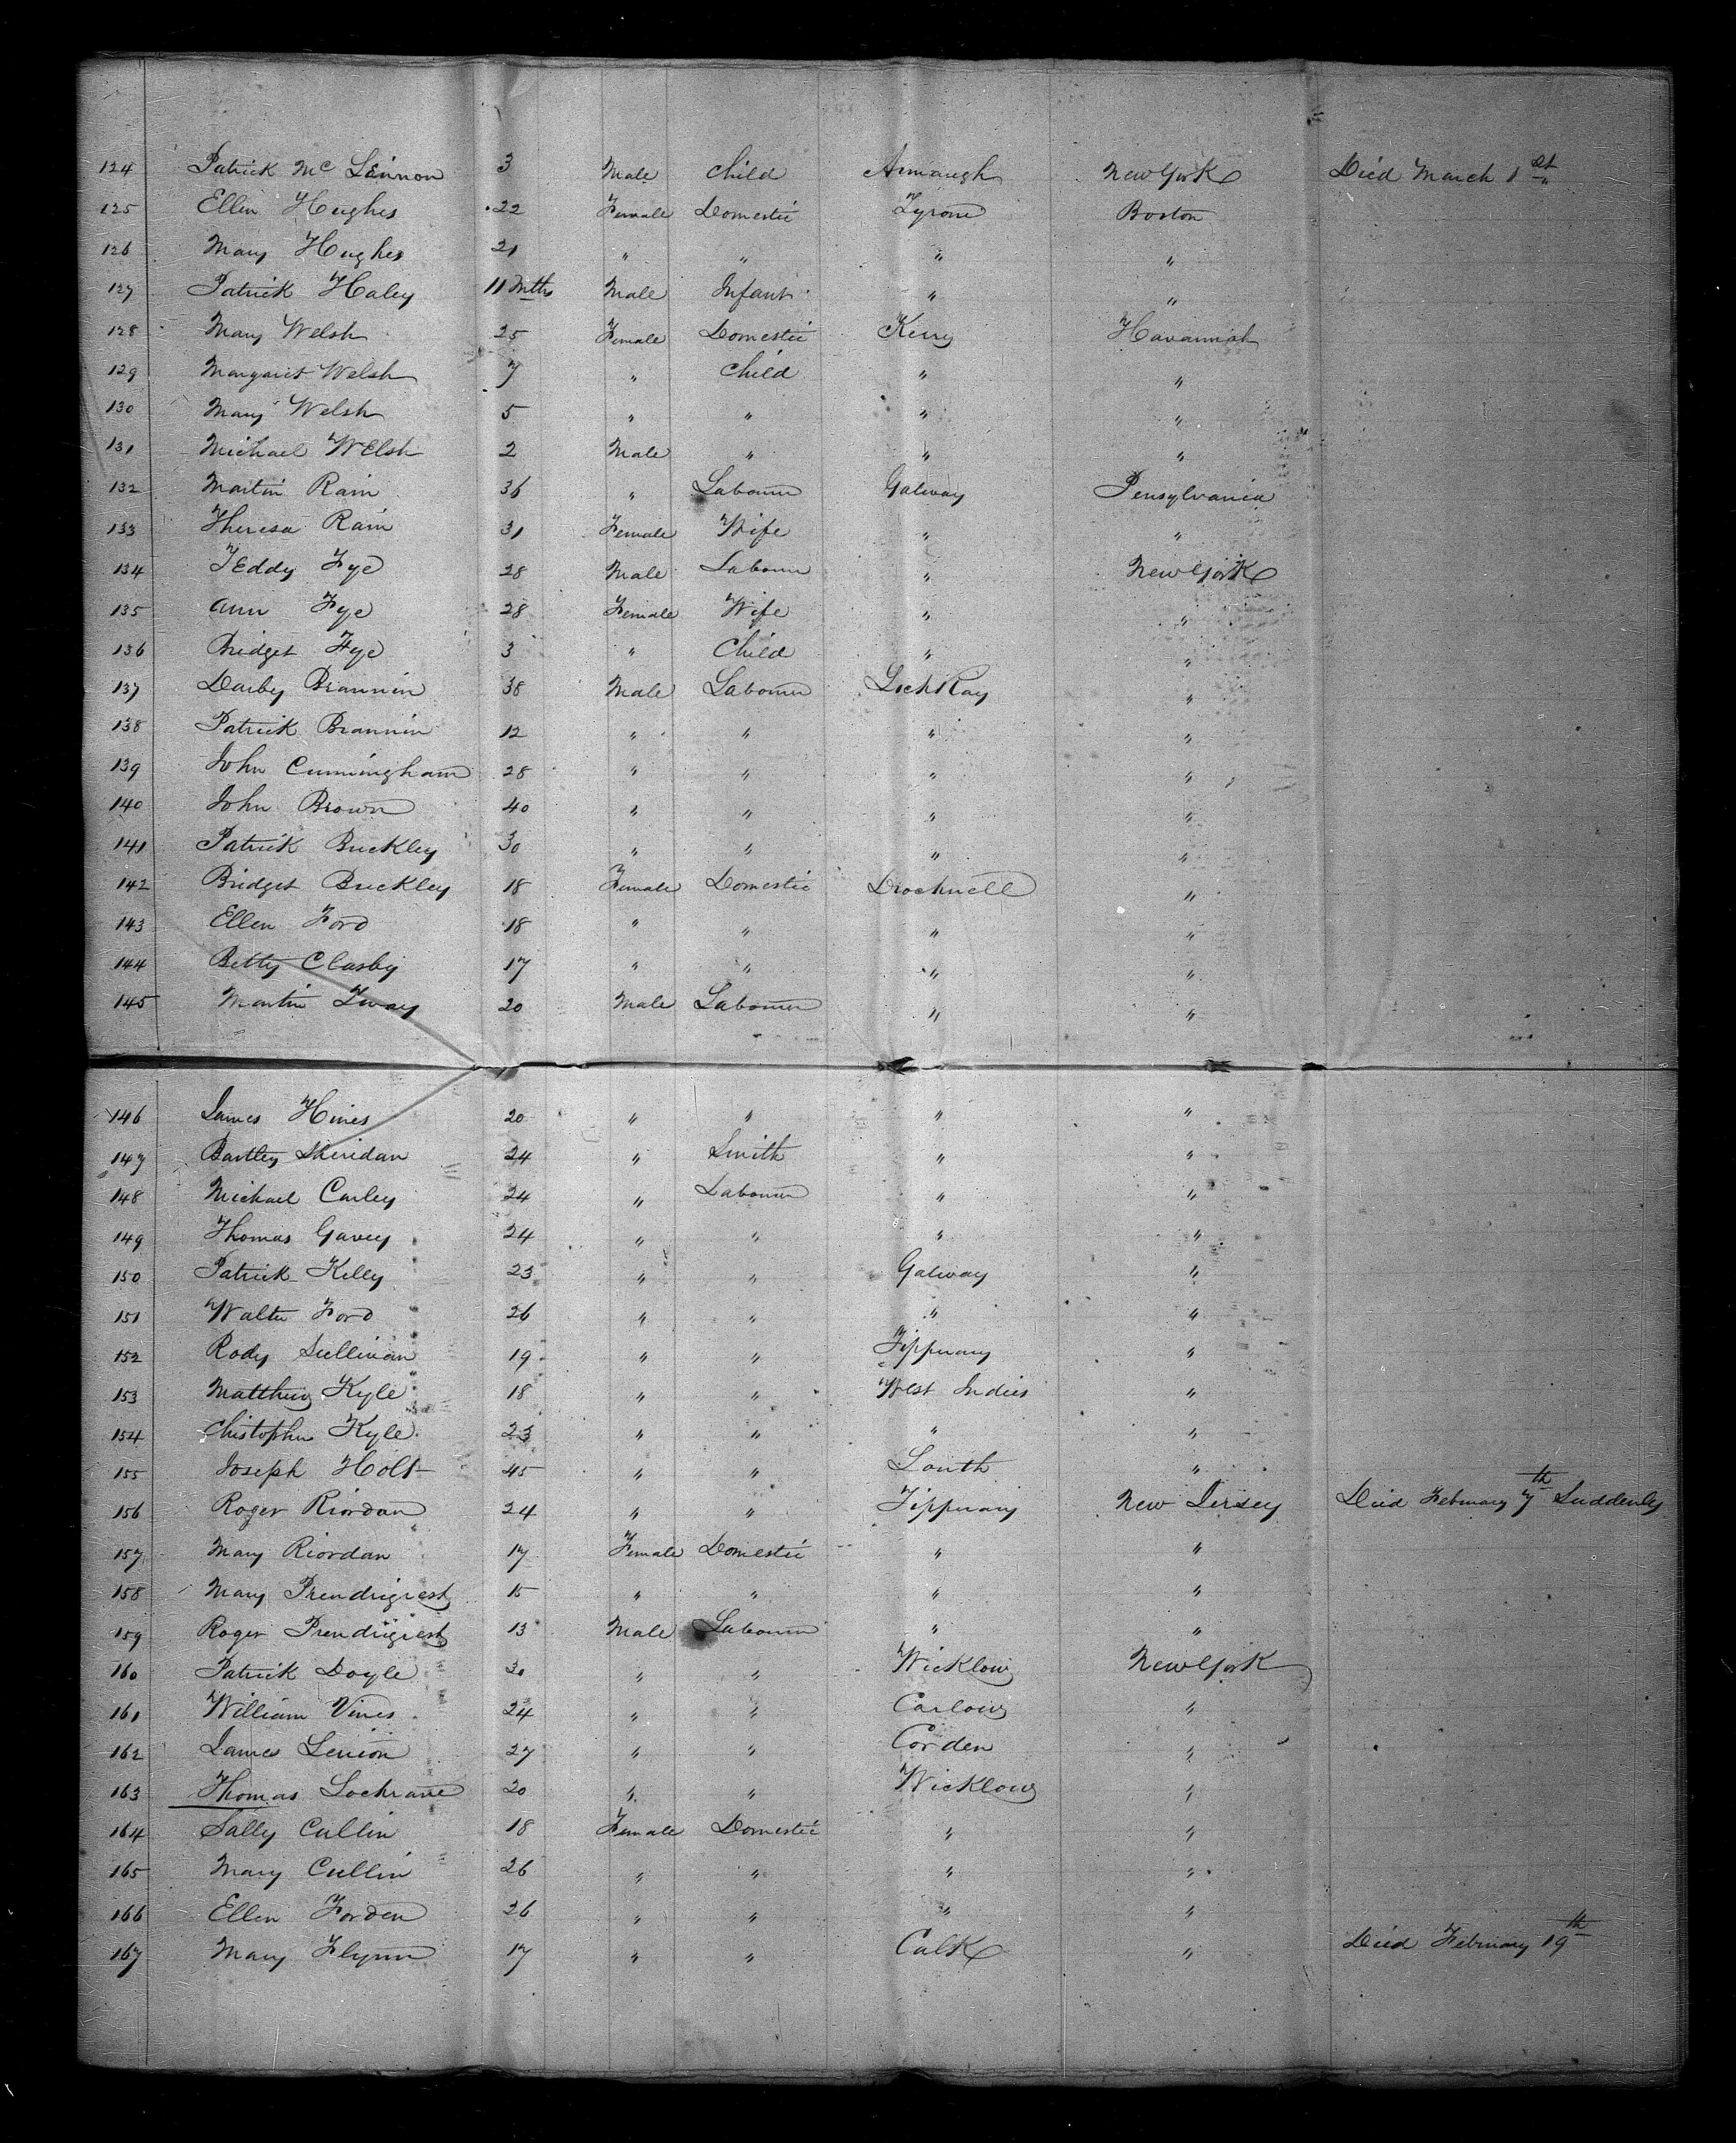 124 Patrick Mc Lennon 3 Male Child Armaugh New York Died March 1st
125 Ellen Hughes 22 Female Domestic Tyrone Boston
126 Mary Hughes 21 " " " "
127 Patrick Haley 11 Mths Male Infant " "
128 Mary Welsh 25 Female Domestic Kerry Havannah
129 Margaret Welsh 7 " Child " "
130 Mary Welsh 5 " " " "
131 Michael Welsh 2 Male " " "
132 Martin Rain 36 " Labourer Galway Pensylvania
133 Theresa Rain 31 Female Wife " "
134 Teddy Fye 28 Male Labourer " New York
135 Ann Fye 28 Female Wife " "
136 Bridget Fye 3 " Child " "
137 Darby Brannin 38 Male Labourer LochRay "
138 Patrick Brannin 12 " " " "
139 John Cunningham 28 " " " "
140 John Brown 40 " " " "
141 Patrick Buckley 30 " " " "
142 Bridget Buckley 18 Female Domestic "
143 Ellen Ford 18 " " " "
144 Betty Clasby 17 " " " "
145 Martin 20 Male Labourer " "
146 James Hines 20 " " " "
147 Bartley Sheridan 24 " Smith " "
148 Michael Curley 24 " Labourer " "
149 Thomas Gavey 24 " " " "
150 Patrick Kelly 23 " " Galway "
151 Walter Ford 26 " " " "
152 Rody Sullivan 19 " " Tipperary "
153 Matthew Kyle 18 " " West Indies "
154 Chistopher Kyle 23 " " " "
155 Joseph Holt 45 " " Louth "
156 Roger Riordan 24 " " Tipperary New Jersey Died February 7th Suddenly
157 Mary Riordan 17 Female Domestic " "
158 Mary Prendrigrest 15 " " " "
159 Roger Prendrigrest 13 Male Labourer " "
160 Patrick Doyle 30 " " Wicklow New York
161 William Vines 24 " " Carlow "
162 James Lenion 27 " " Corden "
163 Thomas Lochrane 20 " " Wicklow "
164 Sally Cullin 18 Female Domestic " "
165 Mary Cullin 26 " " " "
166 Ellen Forden 26 " " " "
167 Mary Flynn 17 " " "  Died February 19th